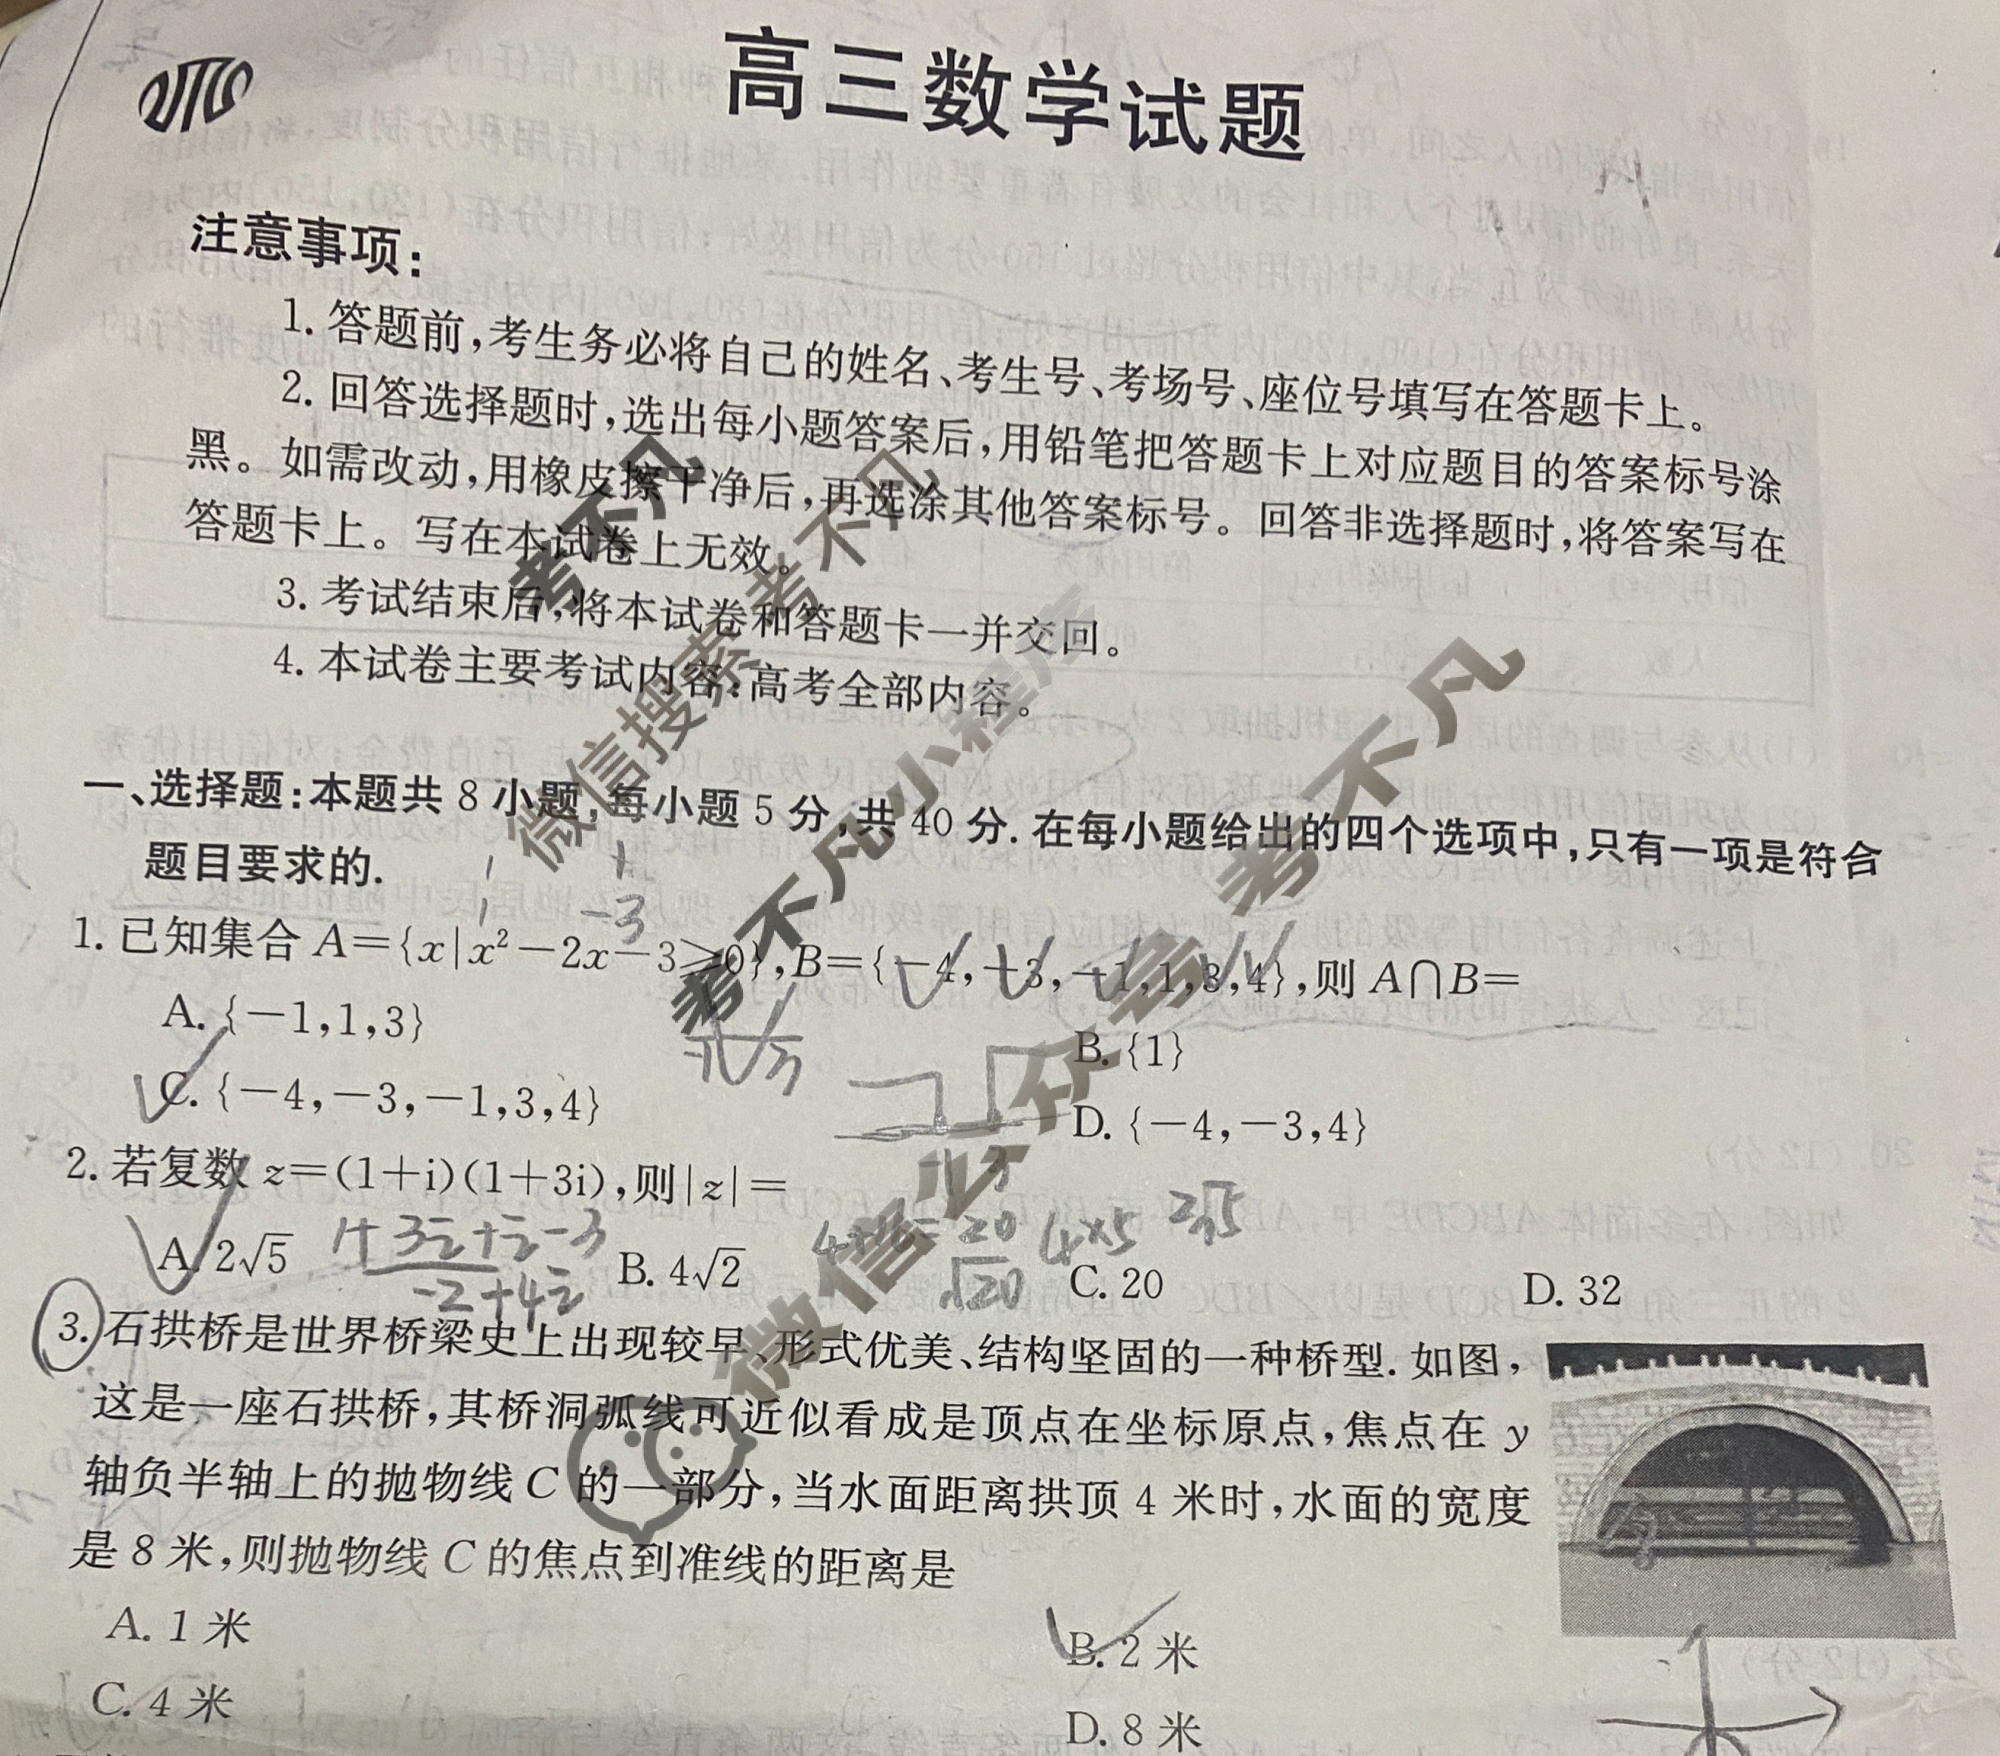 高三数学试题
注意事项:
1. 答题前,考生务必将自己的姓名、考生号、考场号、座位号填写在答题卡上。
2. 回答选择题时,选出每小题答案后,用铅笔把答题卡上对应题目的答案标号涂
黑。如需改动,用橡皮擦干净后,再选涂其他答案标号。回答非选择题时,将答案写在
答题卡上。写在本试卷上无效。
3. 考试结束后,将本试卷和答题卡一并交回。
4. 本试卷主要考试内容:高考全部内容。
考不凡
微信搜索 考不凡
考不凡小程序
微信公众号 考不凡
一、选择题:本题共 8 小题,每小题 5 分,共 40 分. 在每小题给出的四个选项中,只有一项是符合
题目要求的.
1 1
1 -3
1. 已知集合 A={x|x²-2x-3≥0},B={-4,-3,-1,1,3,4},则 A∩B=
A. {-1,1,3}
B. {1}
-1 3
C. {-4,-3,-1,3,4}
D. {-4,-3,4}
-1 3
2. 若复数 z=(1+i)(1+3i),则|z|=
A. 2√5
1+3i+i-3
-2+4i
B. 4√2
4+16=20
√20
4×5 2√5
C. 20
D. 32
3. 石拱桥是世界桥梁史上出现较早、形式优美、结构坚固的一种桥型. 如图,
这是一座石拱桥,其桥洞弧线可近似看成是顶点在坐标原点,焦点在 y
轴负半轴上的抛物线 C 的一部分,当水面距离拱顶 4 米时,水面的宽度
是 8 米,则抛物线 C 的焦点到准线的距离是
A. 1 米
B. 2 米
C. 4 米
D. 8 米